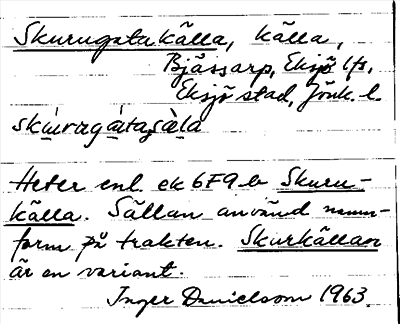 Skurugatukälla, källa,
Bjässarp, Eksjö lfs,
Eksjö stad, Jönk. l.
skúrugátuʃàla
Heter enl. ek 6F9b Skuru-
källa. Sällan använd namn-
form på trakten. Skurkällan
är en variant.
Inger Danielsson 1963.